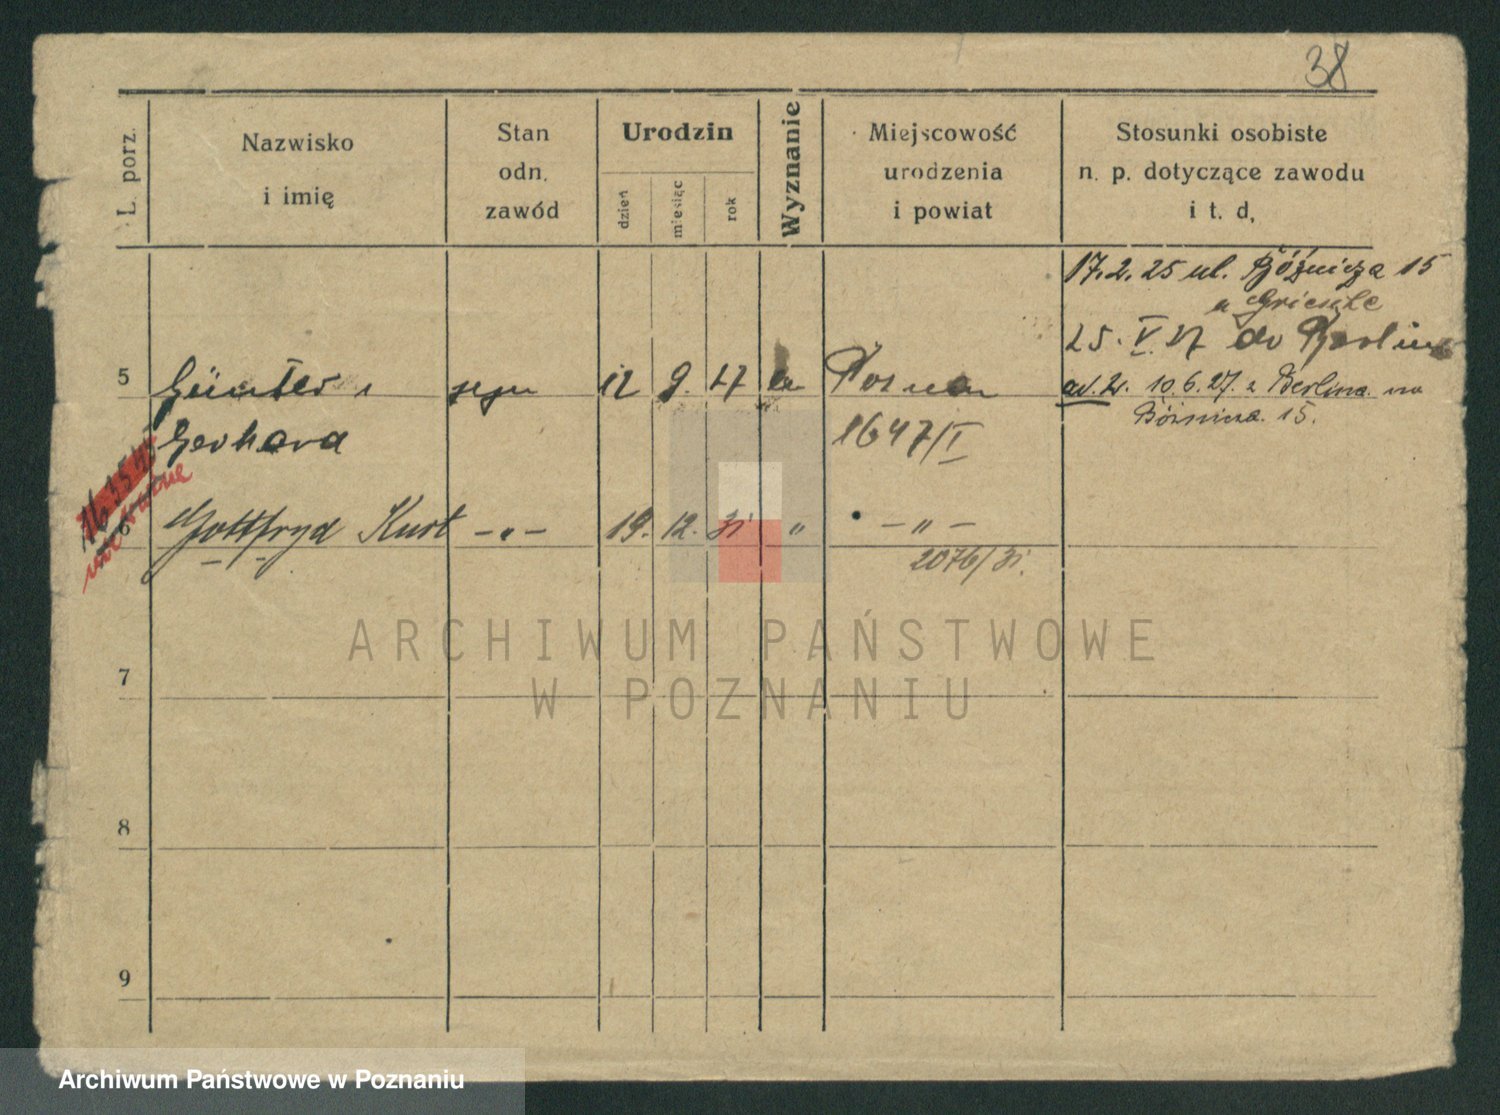 38
L. porz.
Nazwisko
i imię
Stan
odn.
zawód
Urodzin
dzień
miesiąc
rok
Wyznanie
Miejscowość
urodzenia
i powiat
Stosunki osobiste
n. p. dotyczące zawodu
i t. d,
17.2.25 ul. Bóżnicza 15
25. V. 27 do Berlina
10.6.27. z Berlina na
Bóżnicza 15.
5 Günter i syn 12 9. 27 Poznan
Gerhard 1647/I
6 Gottfryd Kurt — „ — 19. 12. 31 „ — „ —
2076/31.
ARCHIWUM PAŃSTWOWE
W POZNANIU
7
8
9
Archiwum Państwowe w Poznaniu